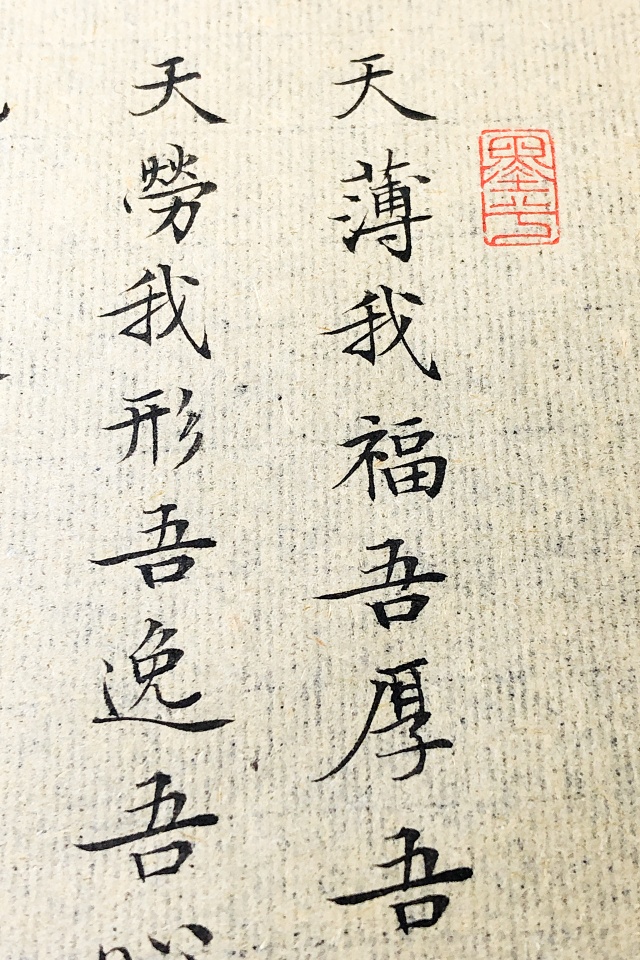 天薄我福吾厚吾
天勞我形吾逸吾